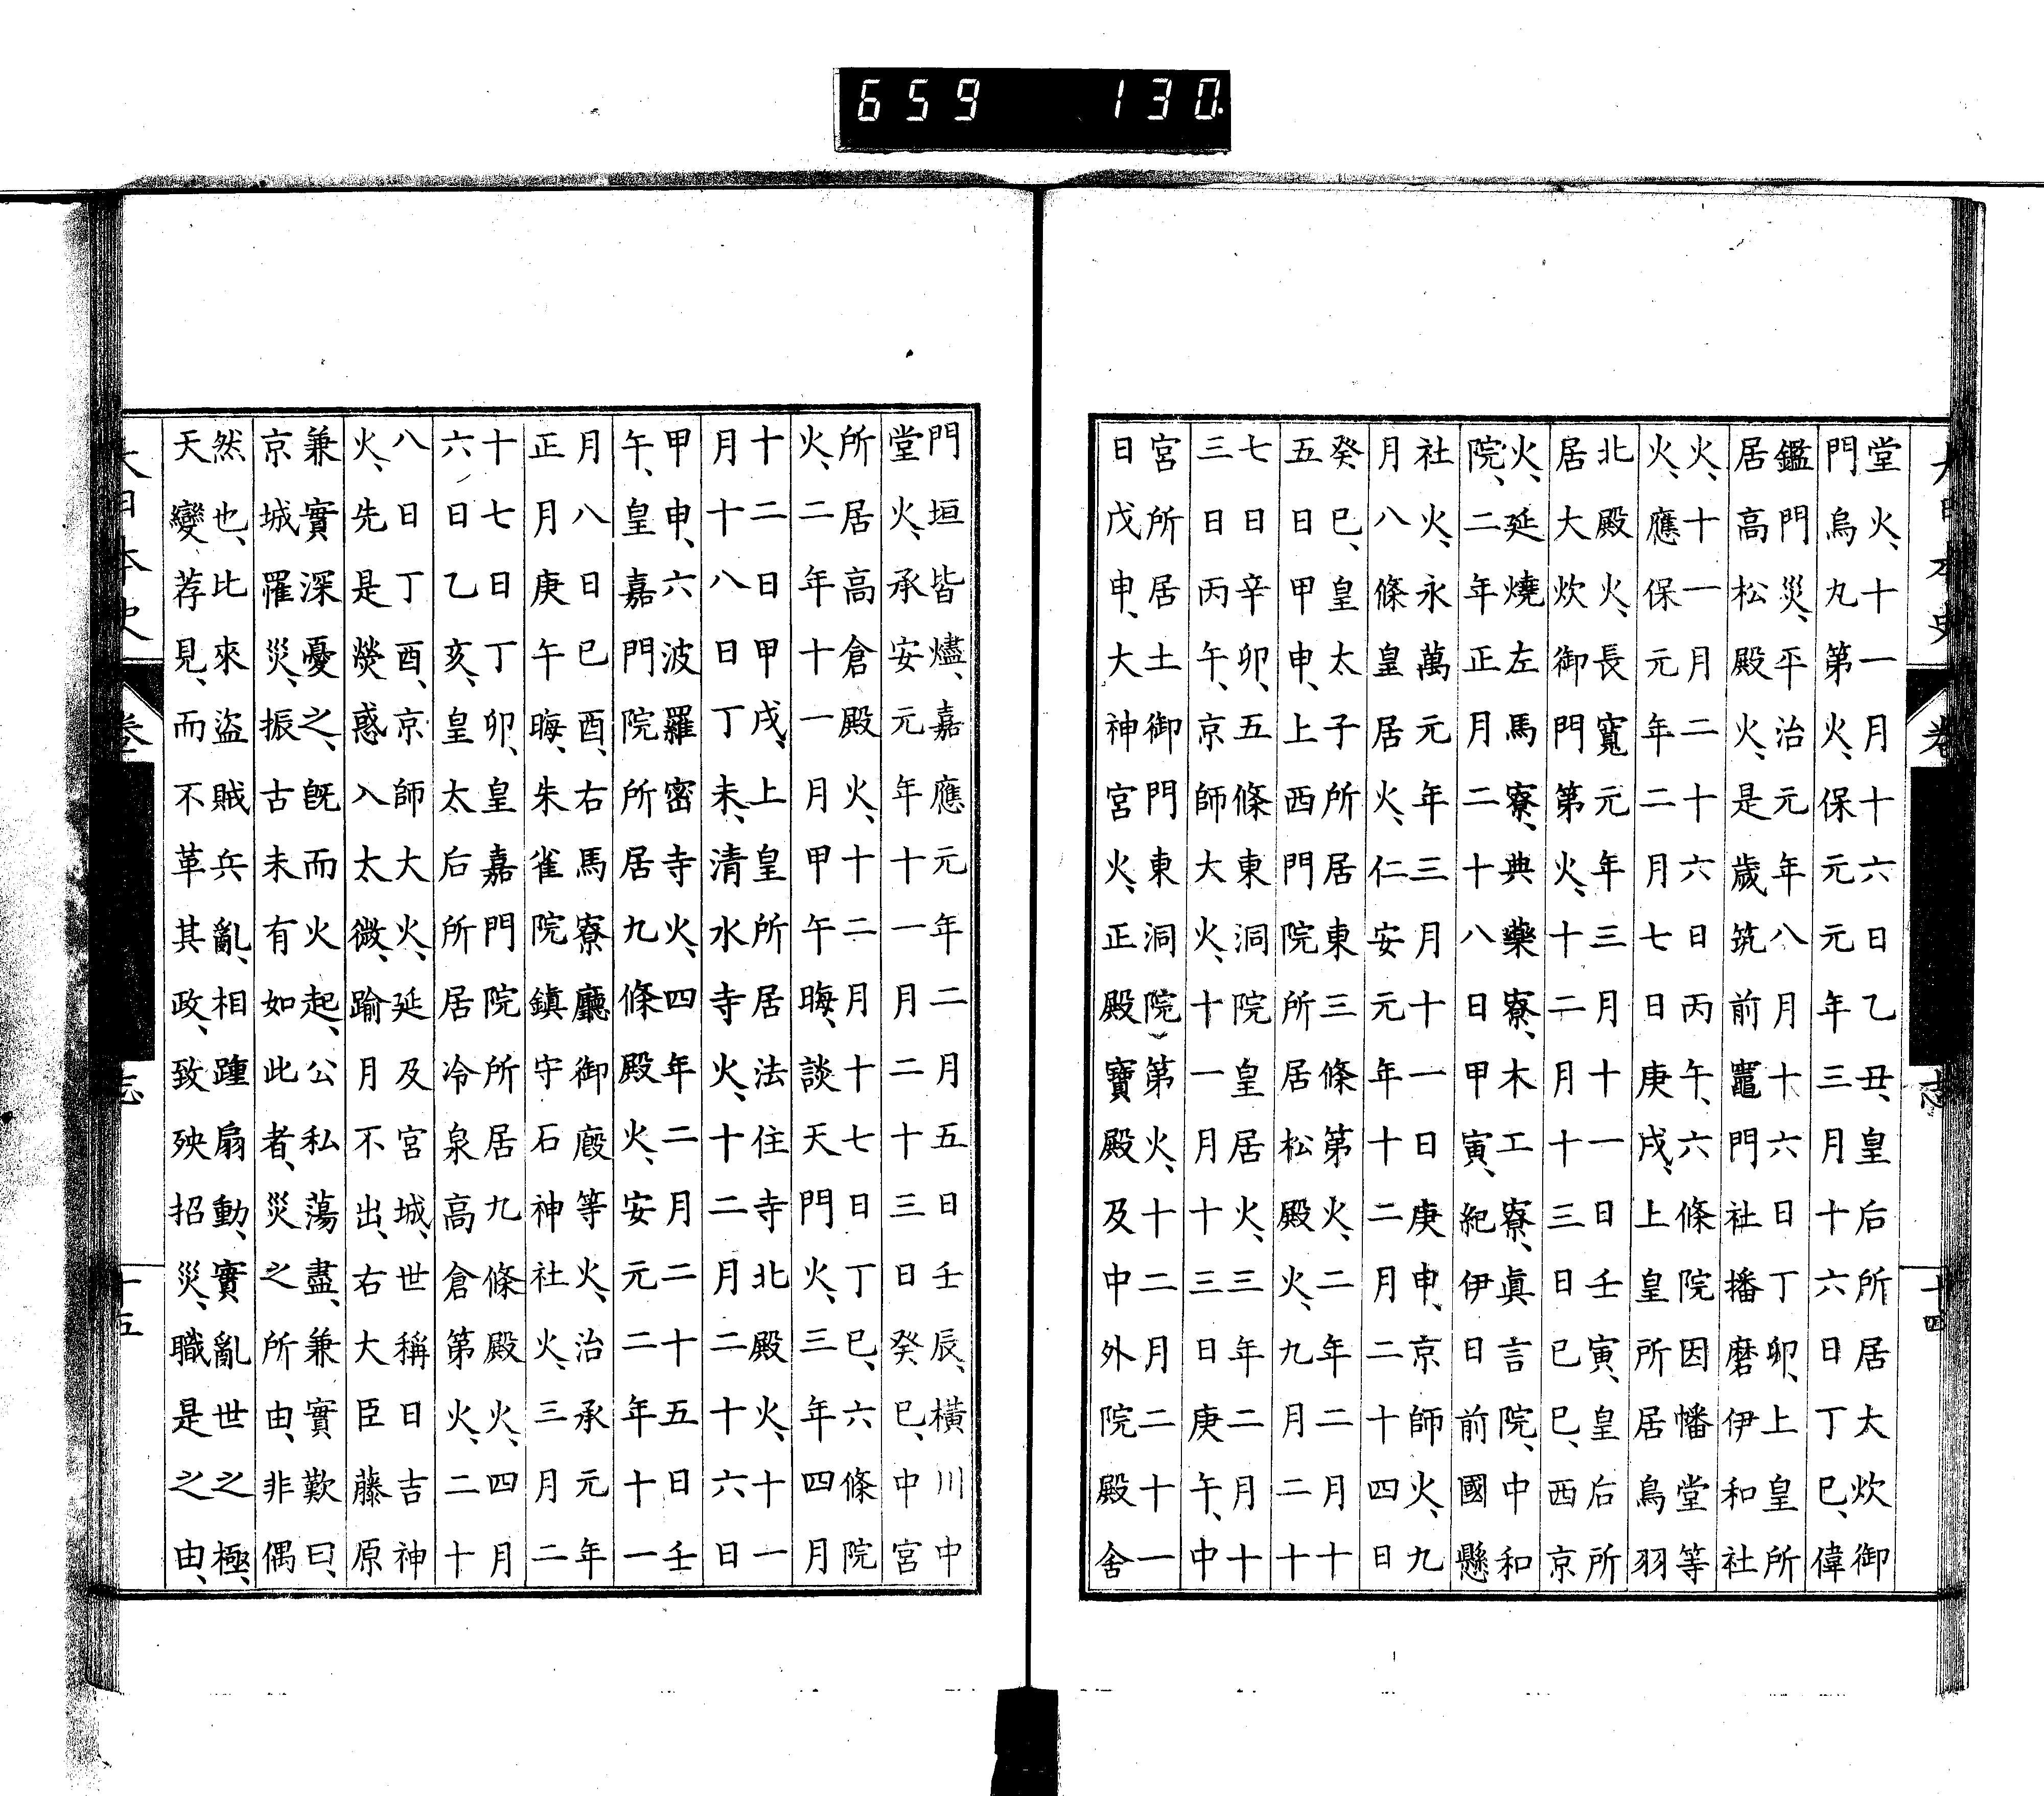 大日本史 卷 志 十四
堂火、十一月十六日乙丑、皇后所居太炊御
門烏九第火、保元元年三月十六日丁巳、偉
鑑門災、平治元年八月十六日丁卯、上皇所
居高松殿火、是歲筑前竈門社播磨伊和社
火、十一月二十六日丙午、六條院因幡堂等
火、應保元年二月七日庚戌、上皇所居鳥羽
北殿火、長寬元年三月十一日壬寅、皇后所
居大炊御門第火、十二月十三日己巳、西京
火、延燒左馬寮、典藥寮、木工寮、眞言院、中和
院、二年正月二十八日甲寅、紀伊日前國懸
社火、永萬元年三月十一日庚申、京師火、九
月八條皇居火、仁安元年十二月二十四日
癸巳、皇太子所居東三條第火、二年二月十
五日甲申、上西門院所居松殿火、九月二十
七日辛卯、五條東洞院皇居火、三年二月十
三日丙午、京師大火、十一月十三日庚午、中
宮所居土御門東洞院第火、十二月二十一
日戊申、大神宮火、正殿寶殿及中外院殿舍
門垣皆燼、嘉應元年二月五日壬辰、橫川中
堂火、承安元年十一月二十三日癸巳、中宮
所居高倉殿火、十二月十七日丁巳、六條院
火、二年十一月甲午晦、談天門火、三年四月
十二日甲戌、上皇所居法住寺北殿火、十一
月十八日丁未、清水寺火、十二月二十六日
甲申、六波羅密寺火、四年二月二十五日壬
午、皇嘉門院所居九條殿火、安元二年十一
月八日己酉、右馬寮廳御廄等火、治承元年
正月庚午晦、朱雀院鎮守石神社火、三月二
十七日丁卯、皇嘉門院所居九條殿火、四月
六日乙亥、皇太后所居冷泉高倉第火、二十
八日丁酉、京師大火、延及宮城、世稱日吉神
火、先是熒惑入太微、踰月不出、右大臣藤原
兼實深憂之、旣而火起、公私蕩盡、兼實歎曰、
京城罹災、振古未有如此者、災之所由、非偶
然也、比來盜賊兵亂、相踵扇動、實亂世之極、
天變荐見、而不革其政、致殃招災、職是之由、
大日本史 卷 志 十五
659 130